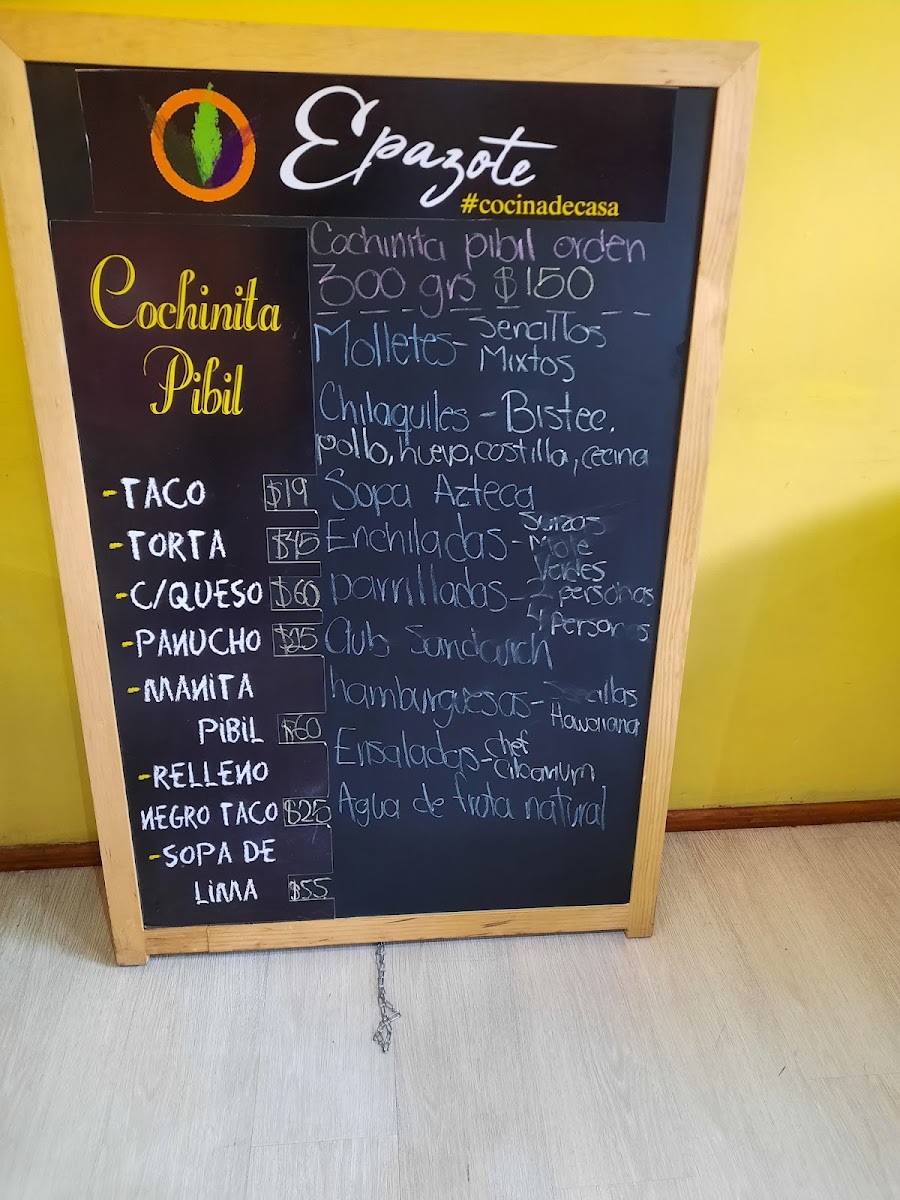 Epazote
#cocinadecasa
Cochinita
Pibil
-TACO $19
-TORTA $45
-C/QUESO $60
-PANUCHO $25
-MANITA
PIBIL $60
-RELLENO
NEGRO TACO $25
-SOPA DE
LIMA $55
Cochinita pibil orden
300 grs $150
Molletes- Sencillos
Mixtos
Chilaquiles - Bistec,
pollo, huevo, costilla, cecina
Sopa Azteca
Enchiladas - Suizas
Mole
Verdes
parrilladas - 2 personas
4 personas
Club Sandwich
hamburguesas - Sencillas
Hawaiana
Ensaladas - chef
Agua de fruta natural